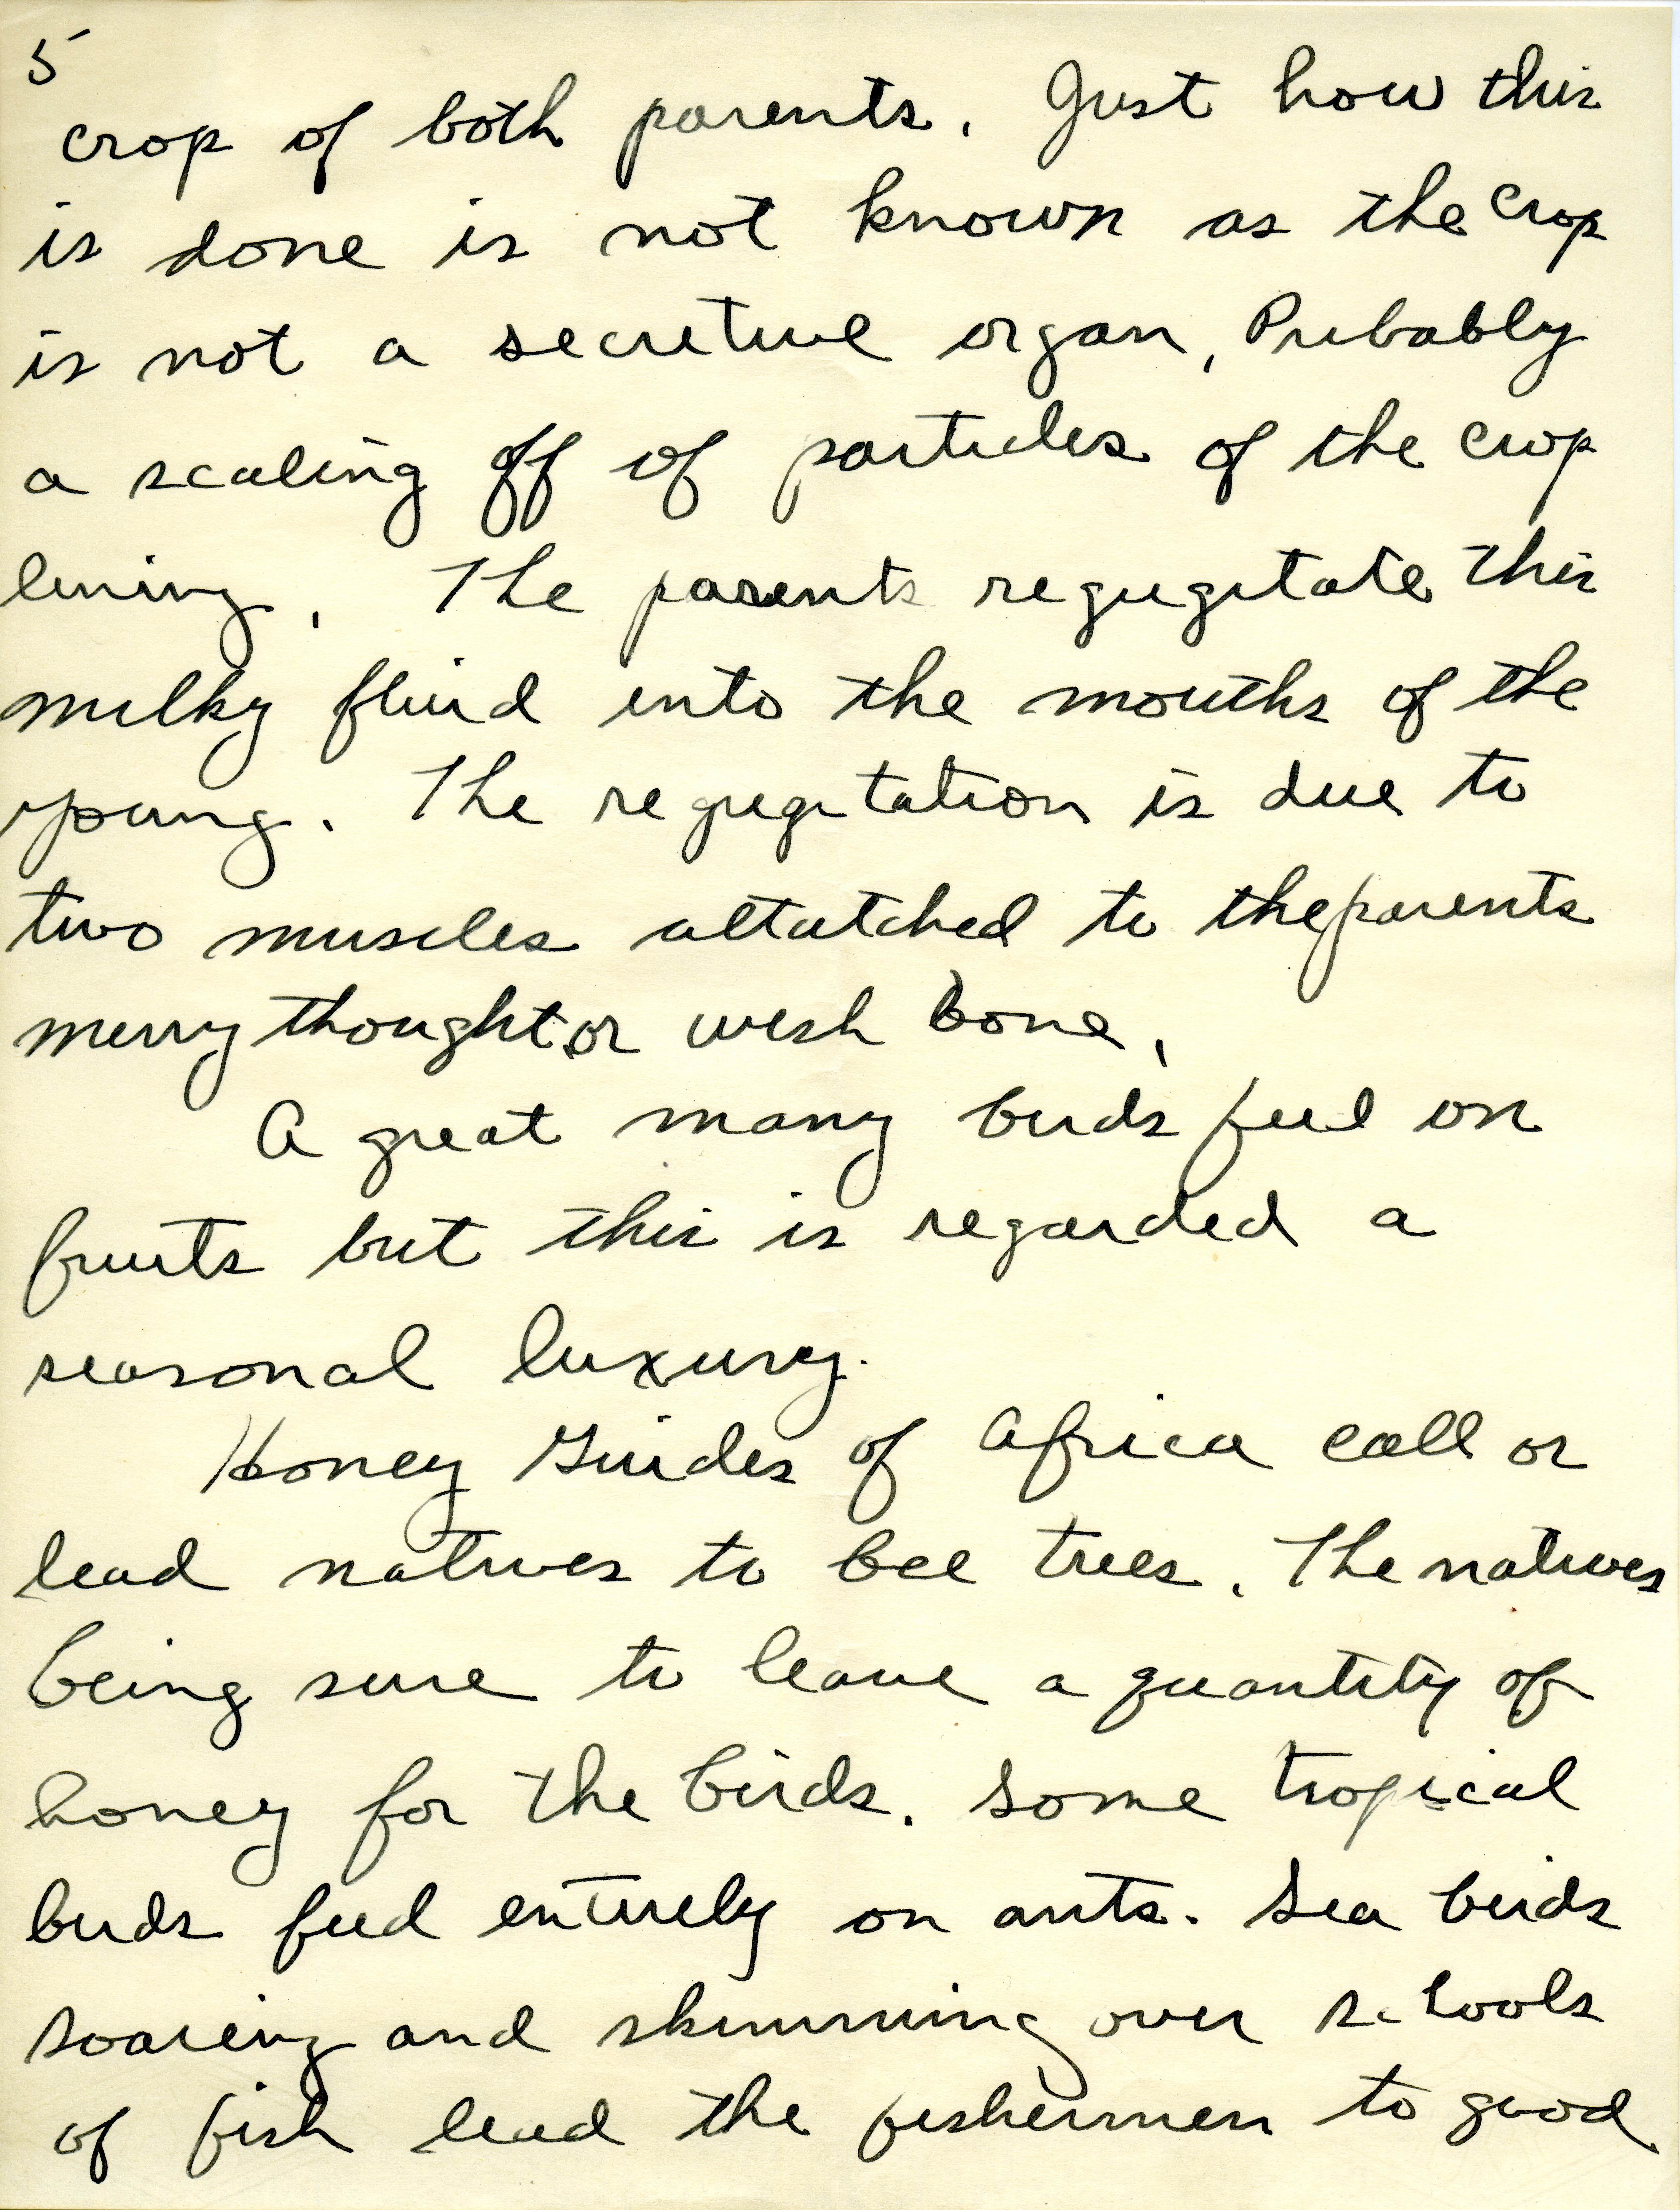 5
crop of both parents. Just how this
is done is not known as the crop
is not a secretive organ, Probably
a scaling off of particles of the crop
lining. The parents regugitate this
milky fluid into the mouths of the
young. The regugitation is due to
two muscles attatched to the parents
merry thought or wish bone,
A great many birds feed on
fruits but this is regarded a
seasonal luxury.
Honey Guides of Africa call or
lead natives to bee trees. The natives
being sure to leave a quantity of
honey for the birds. Some tropical
birds feed entirely on ants. Sea birds
soaring and skimming over schools
of fish lead the fishermen to good